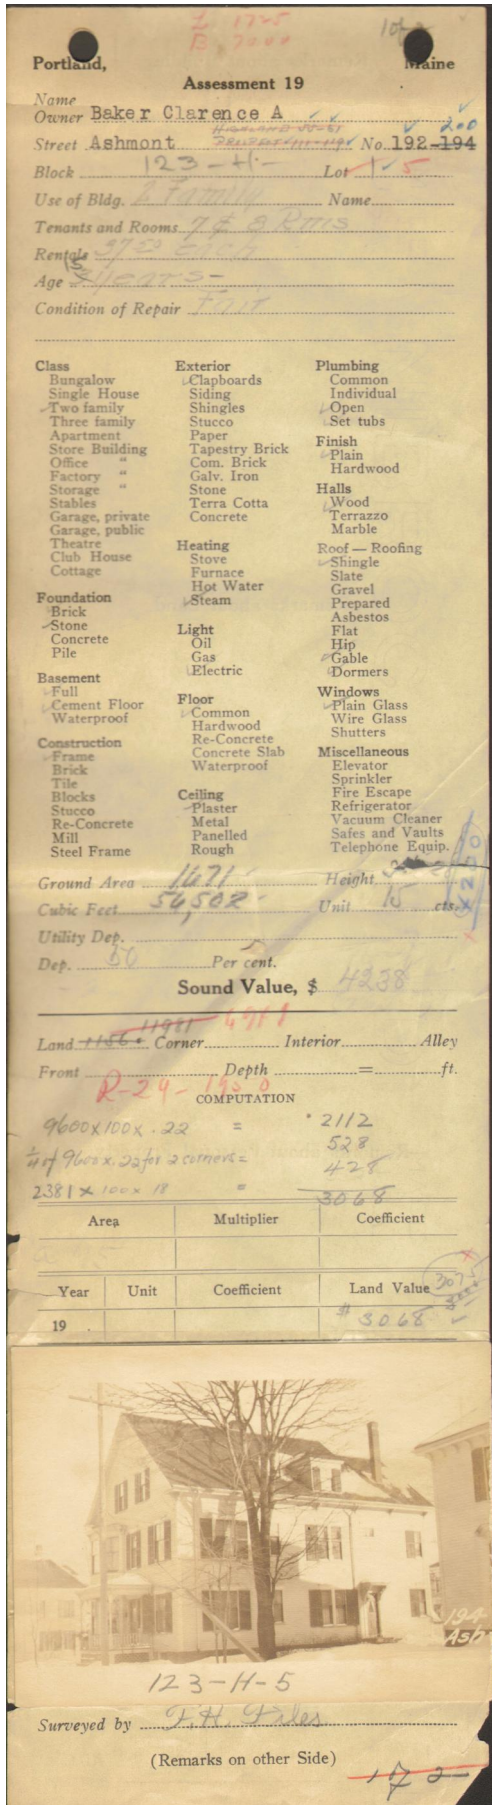 L 1725
B 7000
Portland, Maine
Assessment 19
Name
Owner Baker Clarence A
HIGHLAND 55-51
Street Ashmont No. 192-194 200
Block 123-H- Lot 1 5
Use of Bldg. 2 Family Name
Tenants and Rooms 7 & 8 Rms
Rentals 37 50 each
Age 15 years-
Condition of Repair Fair
Class
Bungalow
Single House
Two family
Three family
Apartment
Store Building
Office "
Factory "
Storage "
Stables
Garage, private
Garage, public
Theatre
Club House
Cottage
Foundation
Brick
Stone
Concrete
Pile
Basement
Full
Cement Floor
Waterproof
Construction
Frame
Brick
Tile
Blocks
Stucco
Re-Concrete
Mill
Steel Frame
Exterior
Clapboards
Siding
Shingles
Stucco
Paper
Tapestry Brick
Com. Brick
Galv. Iron
Stone
Terra Cotta
Concrete
Heating
Stove
Furnace
Hot Water
Steam
Light
Oil
Gas
Electric
Floor
Common
Hardwood
Re-Concrete
Concrete Slab
Waterproof
Ceiling
Plaster
Metal
Panelled
Rough
Plumbing
Common
Individual
Open
Set tubs
Finish
Plain
Hardwood
Halls
Wood
Terrazzo
Marble
Roof — Roofing
Shingle
Slate
Gravel
Prepared
Asbestos
Flat
Hip
Gable
Dormers
Windows
Plain Glass
Wire Glass
Shutters
Miscellaneous
Elevator
Sprinkler
Fire Escape
Refrigerator
Vacuum Cleaner
Safes and Vaults
Telephone Equip.
Ground Area 1671 Height
Cubic Feet 56,502 Unit 15 cts.
Utility Dep.
Dep. 50 Per cent.
Sound Value, $ 4238
11981
Land Corner Interior Alley
Front Depth = ft.
R-29-1950
COMPUTATION
9600 x 100 x .22 = 2112
1/4 of 9600 x .22 for 2 corners = 528
2381 x 100 x 18 = 428
3068
Area Multiplier Coefficient
Year Unit Coefficient Land Value 3075
19 $ 3068
194
Ash
123-H-5
Surveyed by F.H. Files
(Remarks on other Side)
172